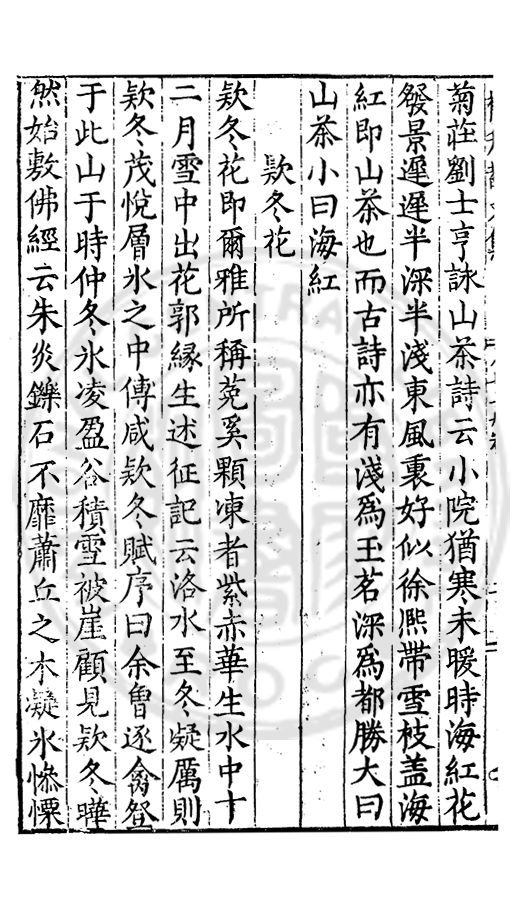 菊莊劉士亨詠山茶詩云小院猶寒未暖時海紅花
發景遲遲半深半淺東風裏好似徐熈帶雪枝盖海
紅即山茶也而古詩亦有淺爲玉茗深爲都勝大曰
山茶小曰海紅
欵冬花
欵冬花即爾雅所稱菟奚顆凍者紫赤華生水中十
二月雪中出花郭縁生述征記云洛水至冬凝厲則
欵冬茂悅層氷之中傅咸欵冬賦序曰余曾逐禽登
于此山于時仲冬氷凌盈谷積雪被崖顧見欵冬曄
然始敷佛經云朱炎鑠石不靡蕭丘之木凝氷慘慄